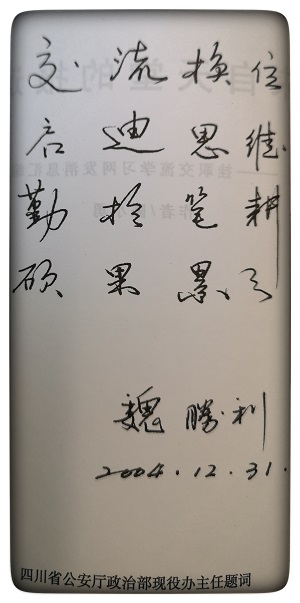 交流换位
启迪思维
勤於笔耕
硕果累々
魏勝利
2004.12.31.
四川省公安厅政治部现役办主任题词